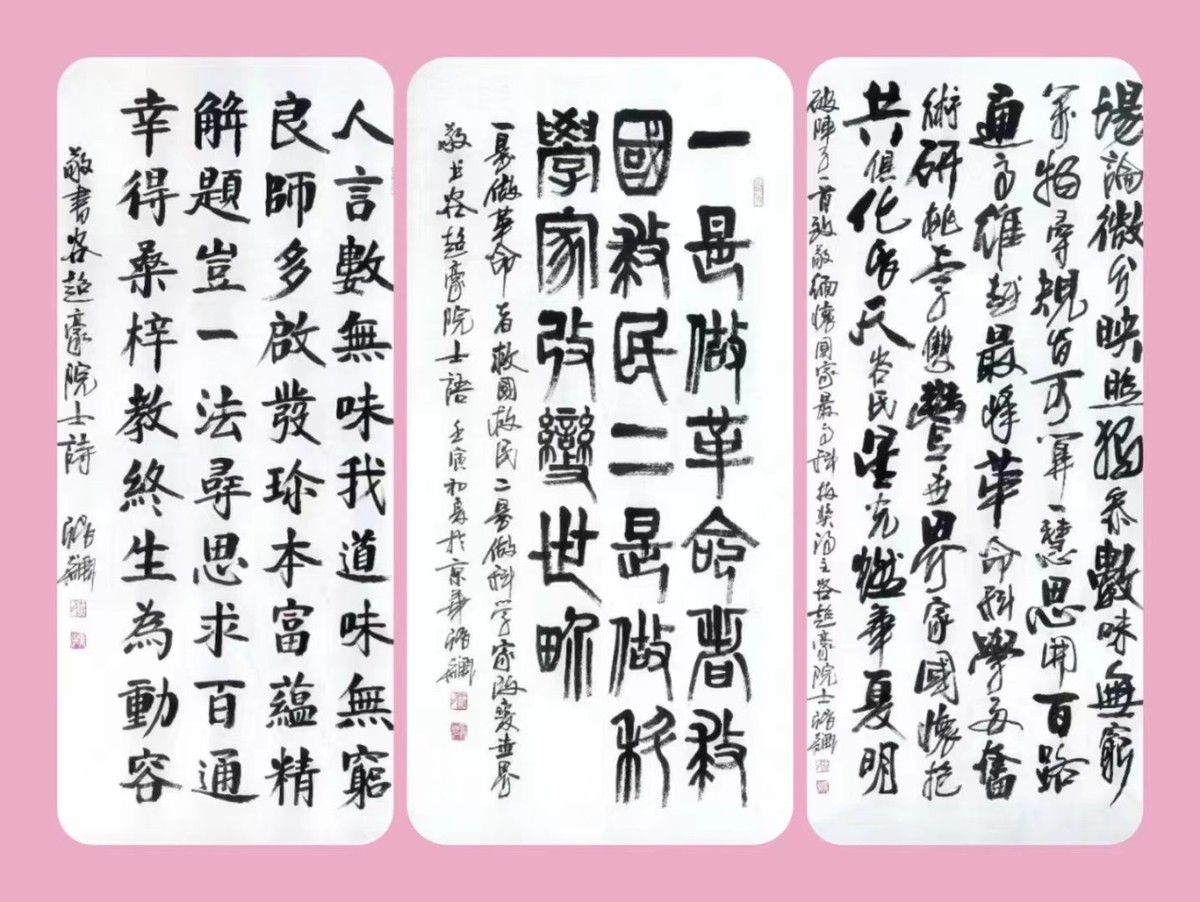 人言數無味我道味無窮
良師多啟發珍本富蘊精
解題豈一法尋思求百通
幸得桑梓教終生為動容
敬書谷超豪院士詩
一是做革命者救
國救民二是做科
學家改變世界
一是做革命者救國救民二是做科学家改变世界
敬书谷超豪院士語 壬寅初春於京華
場論微分映照獨忝數味無窮
萬物尋規皆可算一慧思開百路
通高維越最峰革命科學奮
術研桃李雙豐世界家國懷抱
共俱化天谷民華夏明
破陣子一首致敬緬懷國家最高科技獎得主谷超豪院士